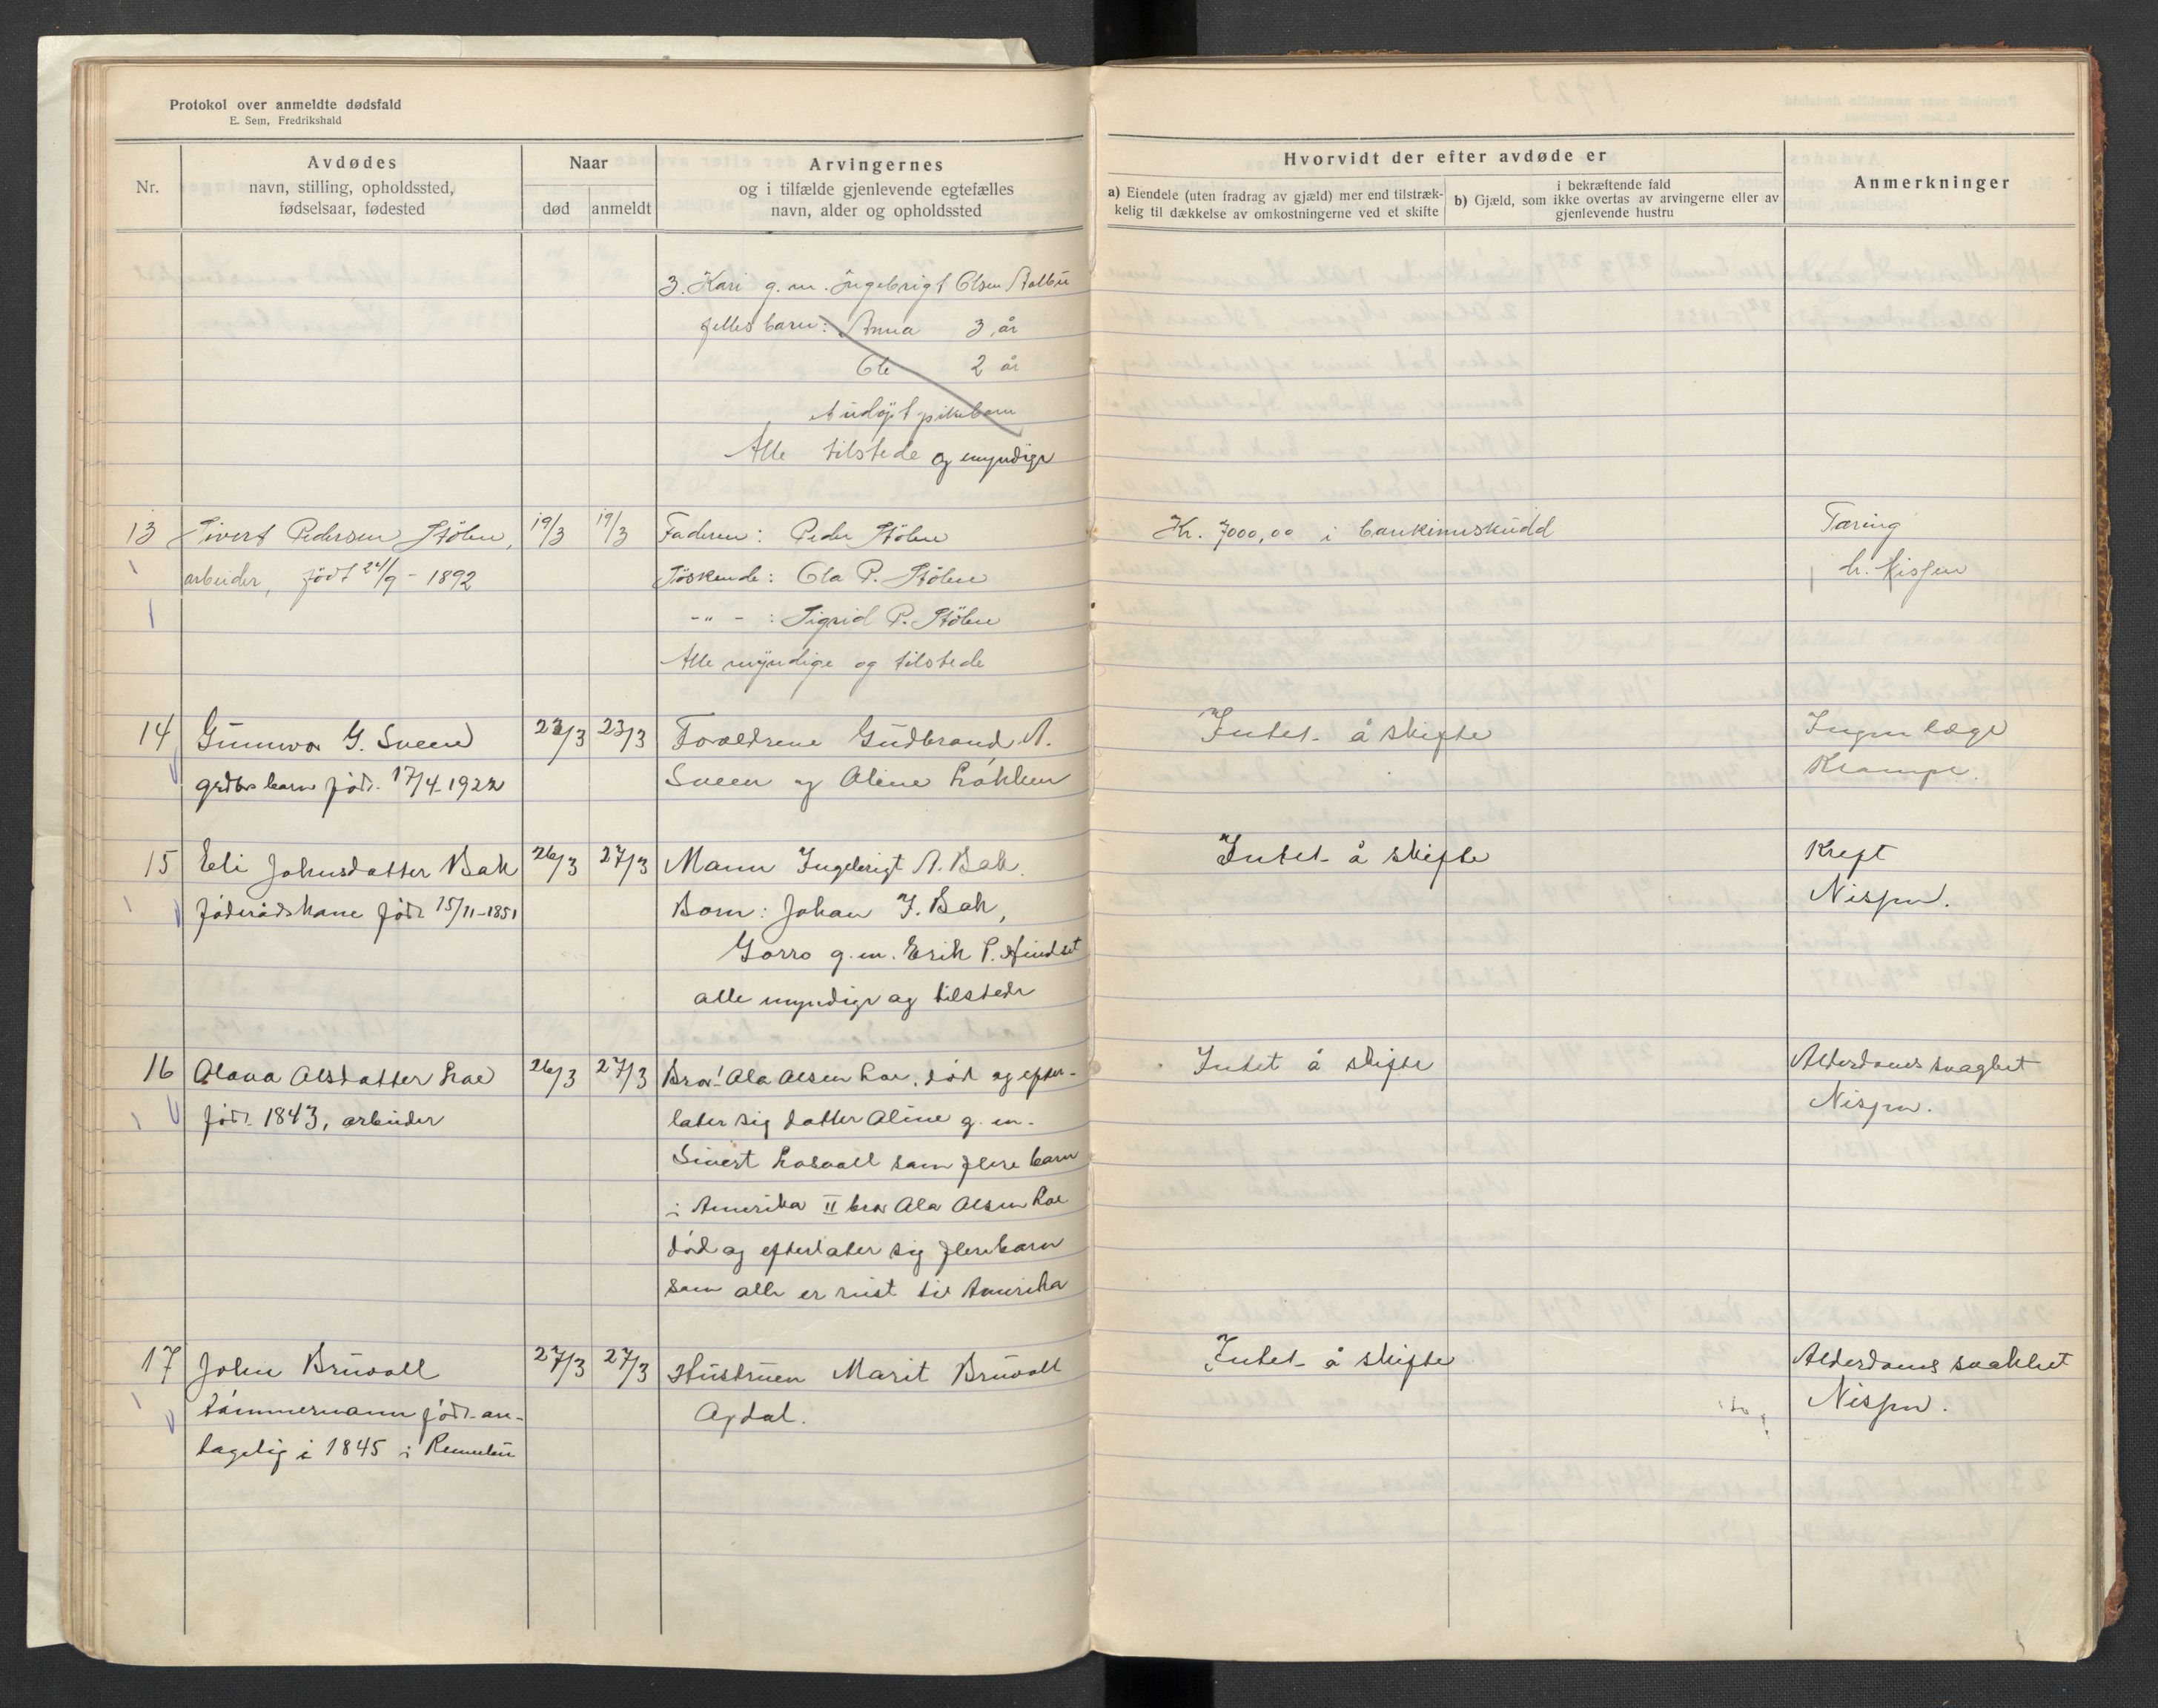 Protokol over anmeldte dødsfald
E. Sem, Fredrikshald
Nr.
Avdødes
navn, stilling, opholdssted,
fødselsaar, fødested
Naar
død anmeldt
Arvingernes
og i tilfælde gjenlevende egtefælles
navn, alder og opholdssted
Hvorvidt der efter avdøde er
a) Eiendele (uten fradrag av gjæld) mer end tilstræk-
kelig til dækkelse av omkostningerne ved et skifte
i bekræftende fald
b) Gjæld, som ikke overtas av arvingerne eller av
gjenlevende hustru
Anmerkninger
3. Kari g. m. Ingebrigt Olsen Stølbu
felles barn: Anna 3 år
Ole 2 år
et udøpt pikebarn
Alle tilstede og myndige
13 Sivert Pedersen Stölen, 19/3 19/3 Faderen: Peder Stölen Kr. 7000,00 i bankinnskudd Tæring
arbeider, født 24/9 - 1892 Söskende: Ola P. Stölen h. Nissen
-"- : Sigrid P. Stölen
Alle myndige og tilstede
14 Gunnvor G. Sveen 23/3 23/3 Foreldrene Gudbrand A. Intet å skifte Ingen læge
grdbr barn föd. 17/4-1922 Sveen og Oline Løkken Krampe.
15 Eli Johnsdatter Bak 26/3 27/3 Mann Ingebrigt A. Bak. Intet å skifte Kreft
föderådskone föd. 15/11-1851 Barn: Johan I. Bak, Nissen.
Gorro g. m. Erik P. Hindset
alle myndige og tilstede
16 Olava Olsdatter Loe 26/3 27/3 Bror! Ola Olsen Loe, död og efter- Intet å skifte Alderdomssvaghet
föd. 1843, arbeider later sig datter Oline g. m. Nissen.
Sivert Losvoll samt flere barn
i Amerika II bror Ola Olsen Loe
död og efterlater sig flere barn
som alle er reist til Amerika
17 John Bruvoll 27/3 27/3 Hustruen Marit Bruvoll Intet å skifte Alderdoms svakhet
tömmermann föd. an- Opdal. Nissen.
tagelig i 1845 i Rennebu